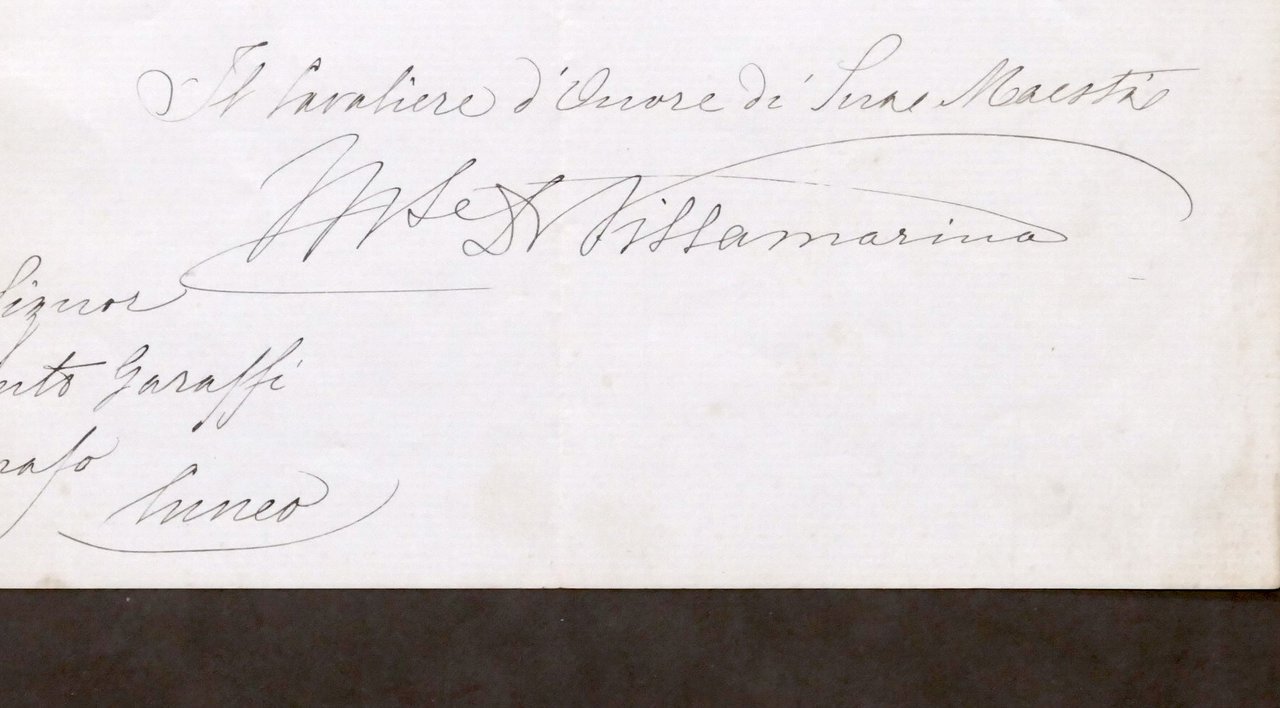 Il Cavaliere d'Onore di Sua Maestà
Mse Di Villamarina
Signor
nto Garaffi
rafo
Cuneo